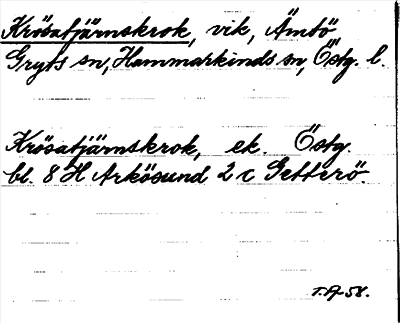 Krösatjärnskrok, vik, Ämtö
Gryts sn, Hammarkinds sn, Östg. l.
Krösatjärnskrok, ek. Östg.
bl. 8 H Arkösund 2 c Getterö.
T.A-58.